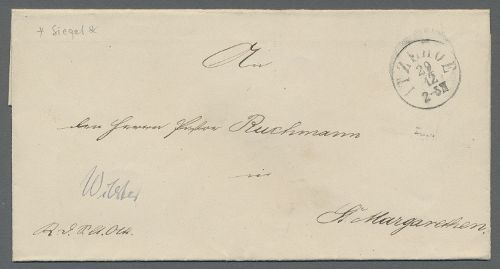 * Siegel *
An
ITZEHOE
29
12
2-3N
den Herrn Pastor Ruchmann
in
Wilster
St Margarethen.